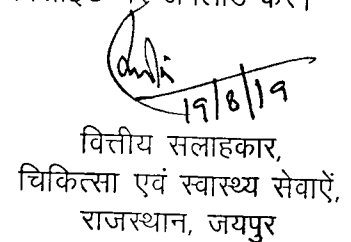 19/8/19
वित्तीय सलाहकार,
चिकित्सा एवं स्वास्थ्य सेवाऐं,
राजस्थान, जयपुर